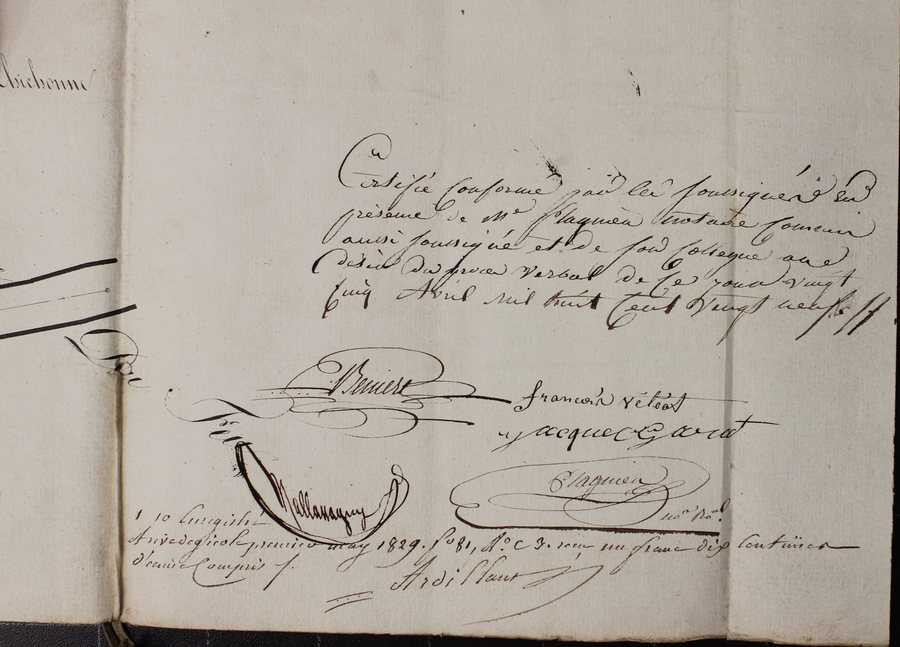 Certifié Conforme par les Soussignés En
présence de Me Plagnieu Notaire Soussi
aussi Soussigné et de Son Collegue au
désir du procès verbal de ce jour vingt
Cinq Avril mil huit Cent vingt neuf
Beniere
francois véléat
jacques Garat
Plagnieu
Mallanaguy
1 10 Enregistré
premier may 1829. fo 81, Ro C 3. reçu un franc dix Centimes
décime Compris
Ardillant